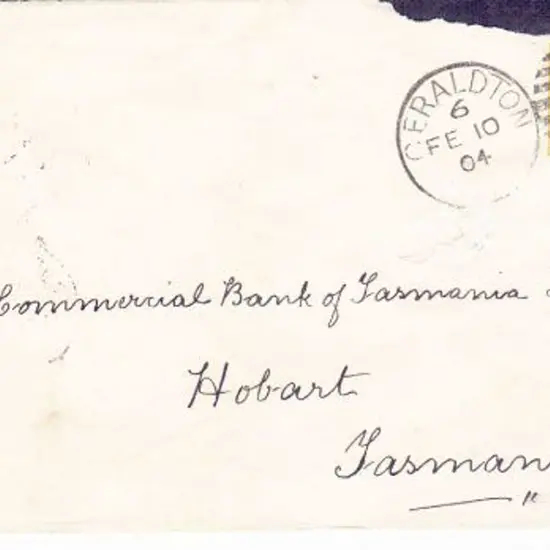 GERALDTON
6
FE 10
04
Commercial Bank of Tasmania
Hobart
Tasman
"